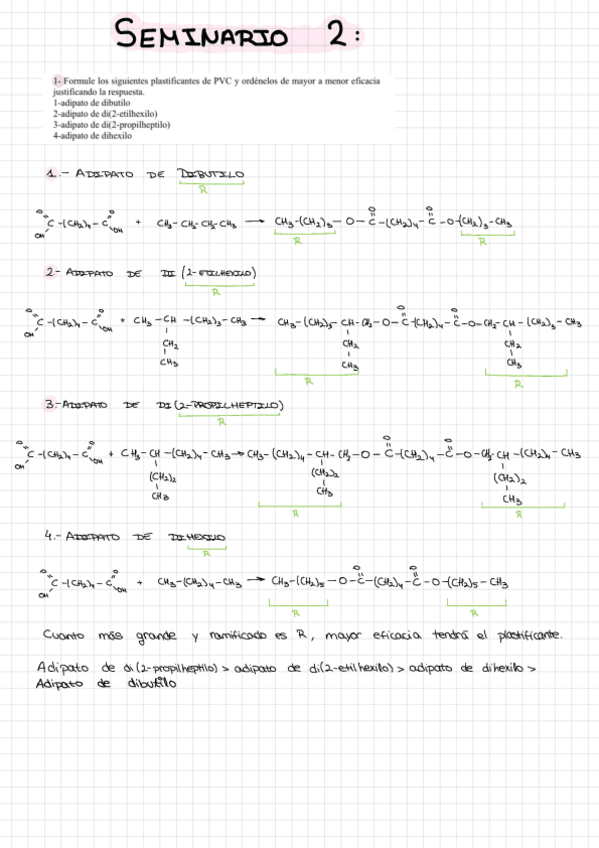 SEMINARIO 2:
1- Formule los siguientes plastificantes de PVC y ordénelos de mayor a menor eficacia
justificando la respuesta.
1-adipato de dibutilo
2-adipato de di(2-etilhexilo)
3-adipato de di(2-propilheptilo)
4-adipato de dihexilo
1.- ADIPATO DE DIBUTILO
R
O O O O
C -(CH2)4- C + CH3-CH2-CH2-CH3 → CH3-(CH2)3-O-C-(CH2)4-C-O-(CH2)3-CH3
OH OH
R R
2.- ADIPATO DE DI (2-ETILHEXILO)
R
O O O O
C -(CH2)4- C + CH3-CH-(CH2)3-CH3 → CH3-(CH2)3-CH-CH2-O-C-(CH2)4-C-O-CH2-CH-(CH2)3-CH3
OH OH
CH2 CH2 CH2
CH3 CH3 CH3
R R
3.- ADIPATO DE DI (2-PROPILHEPTILO)
R
O O O O
C -(CH2)4- C + CH3-CH-(CH2)4-CH3 → CH3-(CH2)4-CH-CH2-O-C-(CH2)4-C-O-CH2-CH-(CH2)4-CH3
OH OH
(CH2)2 (CH2)2 (CH2)2
CH3 CH3 CH3
R R
4.- ADIPATO DE DIHEXILO
R
O O O O
C -(CH2)4- C + CH3-(CH2)4-CH3 → CH3-(CH2)5-O-C-(CH2)4-C-O-(CH2)5-CH3
OH OH
R R
Cuanto más grande y ramificado es R, mayor eficacia tendrá el plastificante.
Adipato de di(2-propilheptilo) > adipato de di(2-etilhexilo) > adipato de dihexilo >
Adipato de dibutilo